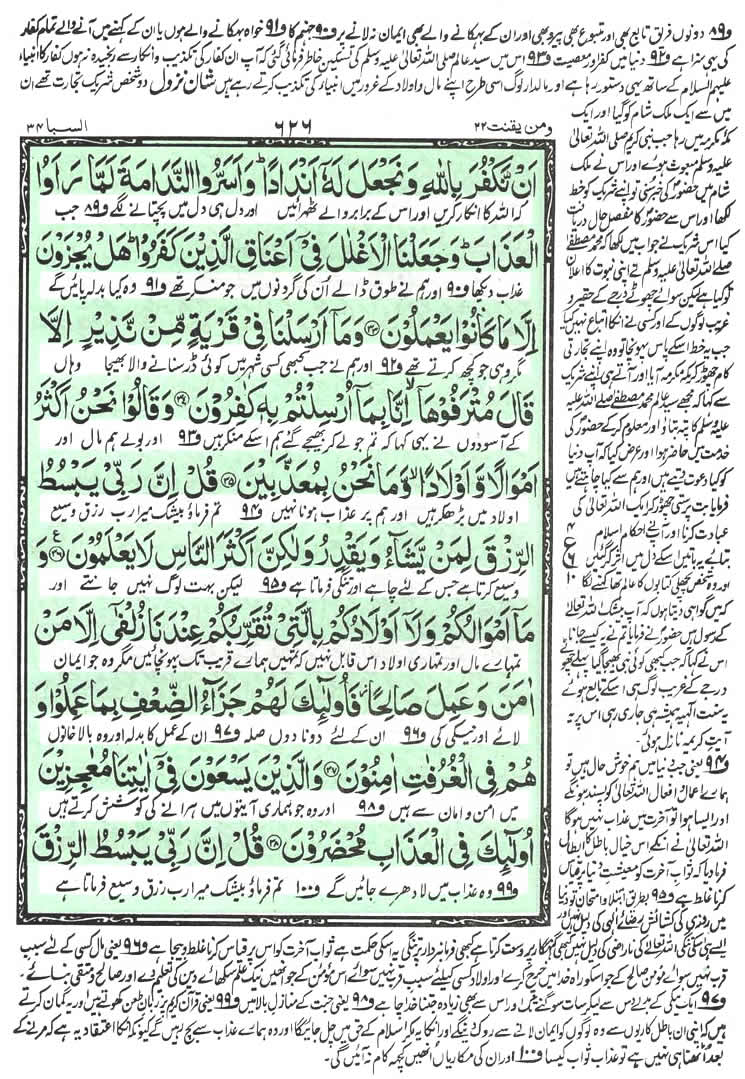 و۸۹ دونوں فریق تابع بھی اور متبوع بھی پیرو بھی اور ان کے بہکانے والے بھی ایمان نہ لانے پر و۹۰ جہنم کا و۹۱ خواہ بہکانے والے ہوں یا ان کے کہنے میں آنے والے تمام کفار
کی یہی سزا ہے و۹۲ دنیا میں کفر اور معصیت و۹۳ اس میں سید عالم صلی اللہ تعالیٰ علیہ وسلم کی تسکین خاطر فرمائی گئی کہ آپ ان کفار کی تکذیب و انکار سے رنجیدہ نہ ہوں کفار کا انبیاء
علیہم السلام کے ساتھ یہی دستور رہا ہے اور مالدار لوگ اسی طرح اپنے مال و اولاد کے غرور میں انبیاء کی تکذیب کرتے رہے ہیں شان نزول دو شخص شریک تجارت تھے ان
ومن یقنت ۲۲
۶۲۶
السبا ۳۴
اَنْ نَّكْفُرَ بِاللّٰهِ وَنَجْعَلَ لَهٗۤ اَنْدَادًا ؕ وَاَسَرُّوا النَّدَامَةَ لَمَّا رَاَوُا
کہ اللہ کا انکار کریں اور اس کے برابر والے ٹھہرائیں اور دل ہی دل میں پچتانے لگے و۸۹ جب
الْعَذَابَ ؕ وَجَعَلْنَا الْاَغْلٰلَ فِیْۤ اَعْنَاقِ الَّذِیْنَ كَفَرُوْا ؕ هَلْ یُجْزَوْنَ
عذاب دیکھا و۹۰ اور ہم نے طوق ڈالے اُن کی گردنوں میں جو منکر تھے و۹۱ وہ کیا بدلہ پائیں گے
اِلَّا مَا كَانُوْا یَعْمَلُوْنَ ۝۳۳ وَمَاۤ اَرْسَلْنَا فِیْ قَرْیَةٍ مِّنْ نَّذِیْرٍ اِلَّا
مگر وہی جو کچھ کرتے تھے و۹۲ اور ہم نے جب کبھی کسی شہر میں کوئی ڈر سنانے والا بھیجا وہاں
قَالَ مُتْرَفُوْهَاۤ ۙ اِنَّا بِمَاۤ اُرْسِلْتُمْ بِهٖ كٰفِرُوْنَ ۝۳۴ وَقَالُوْا نَحْنُ اَكْثَرُ
کے آسودوں نے یہی کہا کہ تم جو لے کر بھیجے گئے ہم اسکے منکر ہیں و۹۳ اور بولے ہم مال اور
اَمْوَالًا وَّاَوْلَادًا ۙ وَّمَا نَحْنُ بِمُعَذَّبِیْنَ ۝۳۵ قُلْ اِنَّ رَبِّیْ یَبْسُطُ
اولاد میں بڑھ کر ہیں اور ہم پر عذاب ہونا نہیں و۹۴ تم فرماؤ بیشک میرا رب رزق وسیع
الرِّزْقَ لِمَنْ یَّشَآءُ وَیَقْدِرُ وَلٰكِنَّ اَكْثَرَ النَّاسِ لَا یَعْلَمُوْنَ ۝۳۶ وَ
وسیع کرتا ہے جس کے لئے چاہے اور تنگی فرماتا ہے و۹۵ لیکن بہت لوگ نہیں جانتے اور
مَاۤ اَمْوَالُكُمْ وَلَاۤ اَوْلَادُكُمْ بِالَّتِیْ تُقَرِّبُكُمْ عِنْدَنَا زُلْفٰۤی اِلَّا مَنْ
تمہارے مال اور تمہاری اولاد اس قابل نہیں کہ تمہیں ہمارے قریب تک پہونچائیں مگر وہ جو ایمان
اٰمَنَ وَعَمِلَ صَالِحًا ؗ فَاُولٰٓئِكَ لَهُمْ جَزَآءُ الضِّعْفِ بِمَا عَمِلُوْا وَ
لائے اور نیکی کی و۹۶ ان کے لئے دونا دوں صلہ و۹۷ ان کے عمل کا بدلہ اور وہ بالاخانوں
هُمْ فِی الْغُرُفٰتِ اٰمِنُوْنَ ۝۳۷ وَالَّذِیْنَ یَسْعَوْنَ فِیْۤ اٰیٰتِنَا مُعٰجِزِیْنَ
میں امن و امان سے ہیں و۹۸ اور وہ جو ہماری آیتوں میں ہرانے کی کوشش کرتے ہیں
اُولٰٓئِكَ فِی الْعَذَابِ مُحْضَرُوْنَ ۝۳۸ قُلْ اِنَّ رَبِّیْ یَبْسُطُ الرِّزْقَ
و۹۹ وہ عذاب میں لا دھرے جائیں گے و۱۰۰ تم فرماؤ بیشک میرا رب رزق وسیع فرماتا ہے
میں سے ایک ملک شام کو گیا اور ایک
مکہ مکرمہ میں رہا جب نبی کریم صلی اللہ تعالیٰ
علیہ وسلم مبعوث ہوئے اور اس نے ملک
شام میں حضور کی خبر سنی تو اپنے شریک کو خط
لکھا اور اس سے حضور کا مفصل حال دریافت
کیا اس شریک نے جواب میں لکھا کہ محمد مصطفےٰ
صلی اللہ تعالیٰ علیہ وسلم نے اپنی نبوت کا اعلان
تو کیا ہے لیکن سوائے چھوٹے درجے کے حقیر و
غریب لوگوں کے اور کسی نے انکا اتباع نہیں کیا
جب یہ خط اسکے پاس پہونچا تو وہ اپنے تجارتی
کام چھوڑ کر مکہ مکرمہ آیا اور آتے ہی اپنے شریک
سے کہا کہ مجھے سید عالم محمد مصطفےٰ صلی اللہ علیہ
وسلم کا پتہ بتاؤ اور معلوم کر کے حضور کی
خدمت میں حاضر ہوا اور عرض کیا کہ آپ دنیا
کو کیا دعوت دیتے ہیں اور ہم سے کیا چاہتے ہیں
فرمایا بت پرستی چھوڑ کر ایک اللہ تعالیٰ کی
عبادت کرنا اور آپ نے احکام اسلام
بتائے یہ باتیں اسکے دل میں اثر کر گئیں
اور وہ شخص پچھلی کتابوں کا عالم تھا کہنے لگا
کہ میں گواہی دیتا ہوں کہ آپ بیشک اللہ تعالیٰ
کے رسول ہیں حضور نے فرمایا تم نے یہ کیسے جانا
اس نے کہا کہ جب کبھی کوئی نبی بھیجا گیا پہلے چھوٹے
درجے کے غریب لوگ ہی اسکے تابع ہوئے
یہ سنت الٰہیہ ہمیشہ ہی جاری رہی اس پر یہ
آیت کریمہ نازل ہوئی۔
و۹۴ یعنی جب دنیا میں ہم خوش حال ہیں تو
ہمارے اعمال و افعال اللہ تعالیٰ کو پسند ہونگے
اور ایسا ہوا تو آخرت میں عذاب نہیں ہوگا
اللہ تعالیٰ نے انکے اس خیال باطل کا ابطال
فرما دیا کہ ثواب آخرت کو معیشت دنیا پر قیاس
کرنا غلط ہے و۹۵ بطریق ابتلا و امتحان تو دنیا
میں روزی کی کشائش رضائے الٰہی کی دلیل نہیں
ایسے ہی اسکی تنگی اللہ تعالیٰ کی ناراضی کی دلیل نہیں کبھی گنہگار پر وسعت کرتا ہے کبھی فرمانبردار پر تنگی یہ اسکی حکمت ہے ثواب آخرت کو اس پر قیاس کرنا غلط و بیجا ہے و۹۶ یعنی مال کسی کے لئے سبب
قرب نہیں سوائے مومن صالح کے جو اسکو راہ خدا میں خرچ کرے اور اولاد کسی کیلئے سبب قرب نہیں سوائے اس مومن کے جو انھیں نیک علم سکھائے دین کی تعلیم دے اور صالح و متقی بنائے۔
و۹۷ ایک نیکی کے بدلے دس سے لیکر سات سو گنے تک اور اس سے بھی زیادہ جتنا خدا چاہے و۹۸ یعنی جنت کے منازل بالا میں و۹۹ یعنی قرآن کریم پر زبان طعن کھولتے ہیں اور یہ گمان کرتے
ہیں کہ اپنی ان باطل کاریوں سے وہ لوگوں کو ایمان لانے سے روک دینگے اور انکا یہ مکر اسلام کے حق میں چل جائیگا اور وہ ہمارے عذاب سے بچ رہیں گے کیونکہ انکا اعتقاد یہ ہے کہ مرنے کے
بعد اٹھنا ہی نہیں ہے تو عذاب ثواب کیسا و۱۰۰ اور ان کی مکاریاں انھیں کچھ کام نہ آئیں گی۔